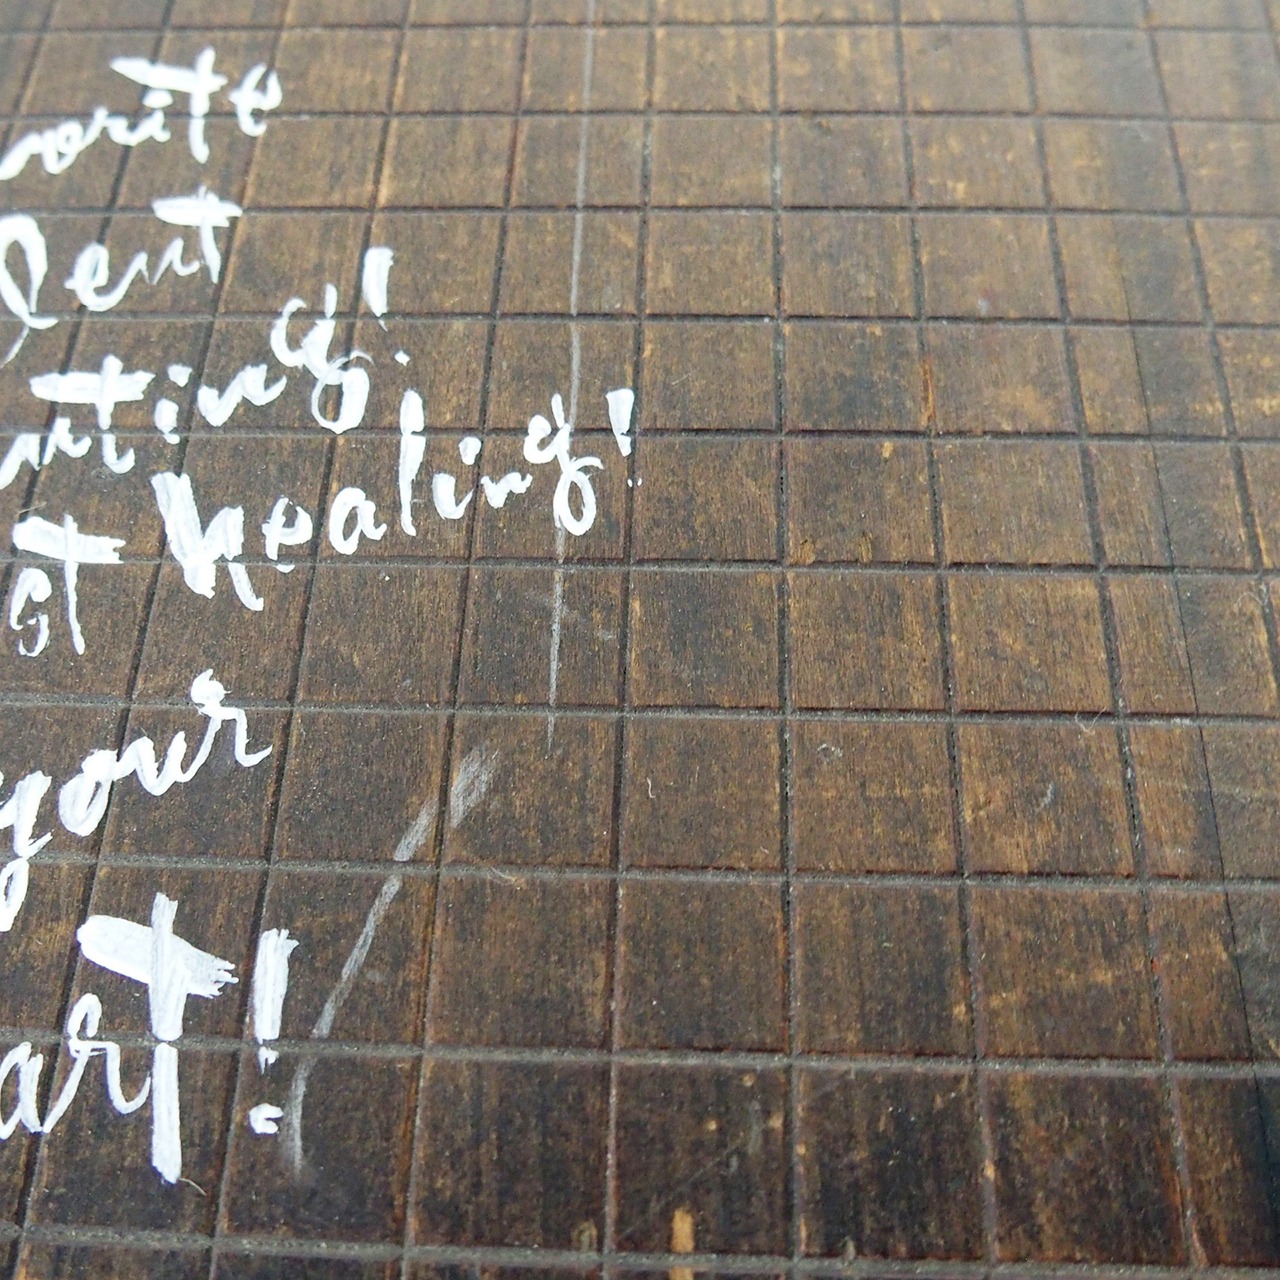 vorite
lent
nting!
st healing!
your
art!